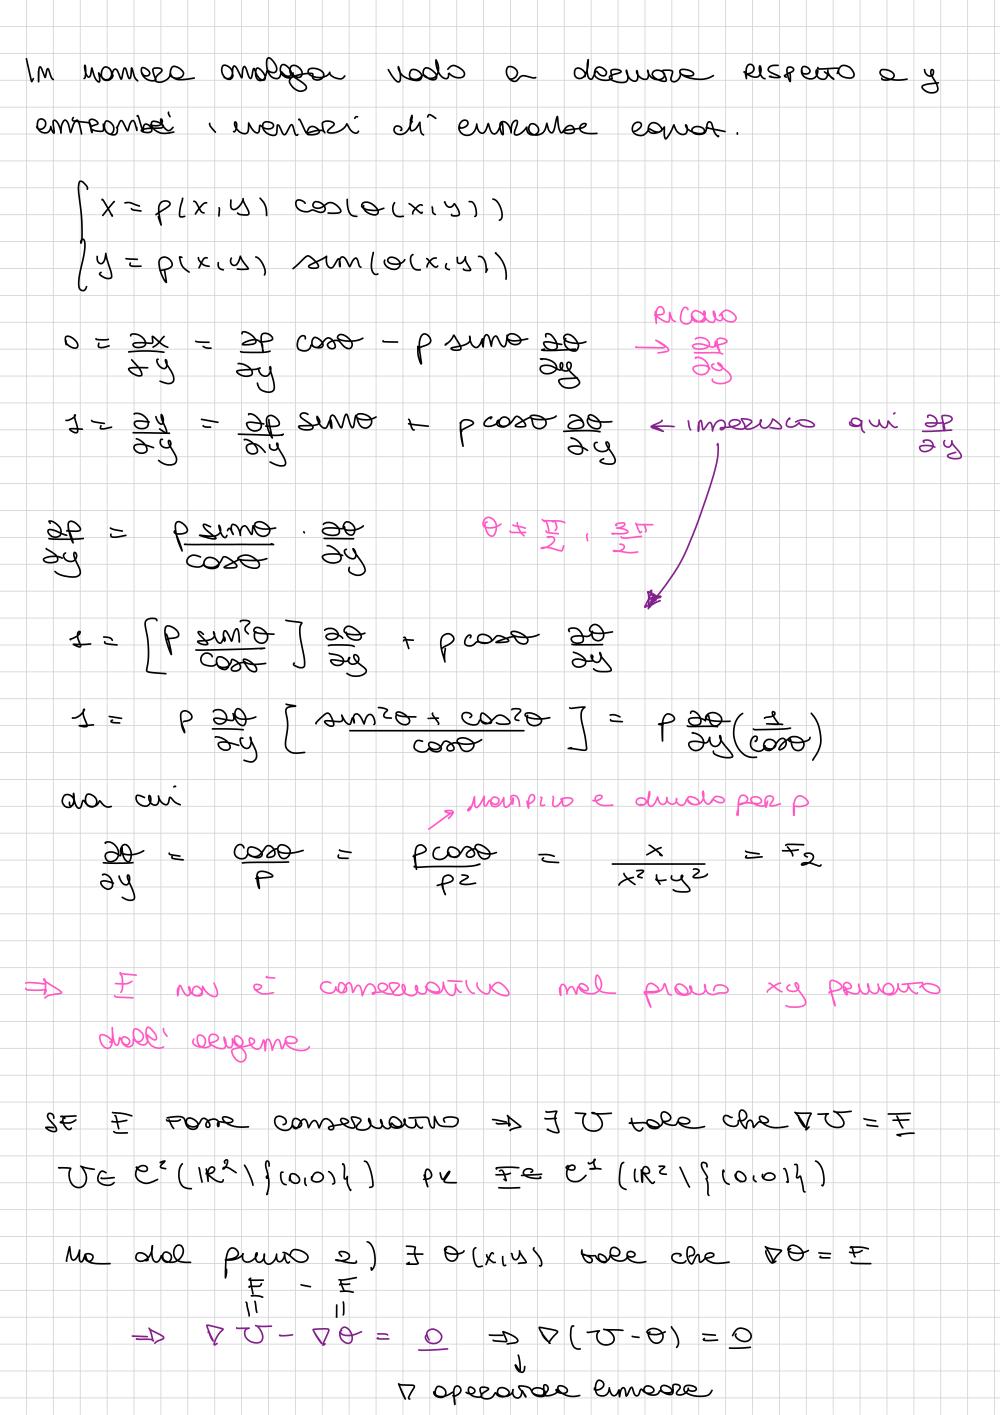 In maniera analoga vado a derivare RISPETTO a y
entrambi i membri di entrambe equaz.
{ x = ρ(x,y) cos(θ(x,y))
y = ρ(x,y) sin(θ(x,y))
RICAVO
0 = ∂x/∂y = ∂ρ/∂y cosθ - ρ sinθ ∂θ/∂y → ∂ρ/∂y
1 = ∂y/∂y = ∂ρ/∂y sinθ + ρ cosθ ∂θ/∂y ← inserisco qui ∂ρ/∂y
∂ρ/∂y = ρ sinθ/cosθ · ∂θ/∂y θ ≠ π/2, 3π/2
1 = [ρ sin²θ/cosθ] ∂θ/∂y + ρ cosθ ∂θ/∂y
1 = ρ ∂θ/∂y [sin²θ + cos²θ/cosθ] = ρ ∂θ/∂y (1/cosθ)
da cui
moltiplico e divido per ρ
∂θ/∂y = cosθ/ρ = ρcosθ/ρ² = x/x²+y² = F₂
⇒ F non è conservativo nel piano xy privato
dell'origine
SE F fosse conservativo ⇒ ∃ U tale che ∇U = F
U ∈ C²(ℝ²\{(0,0)}) pk F ∈ C¹(ℝ²\{(0,0)})
Ma dal punto 2) ∃ θ(x,y) tale che ∇θ = F
F - F
= =
⇒ ∇U - ∇θ = 0 ⇒ ∇(U-θ) = 0
↓
∇ operatore lineare